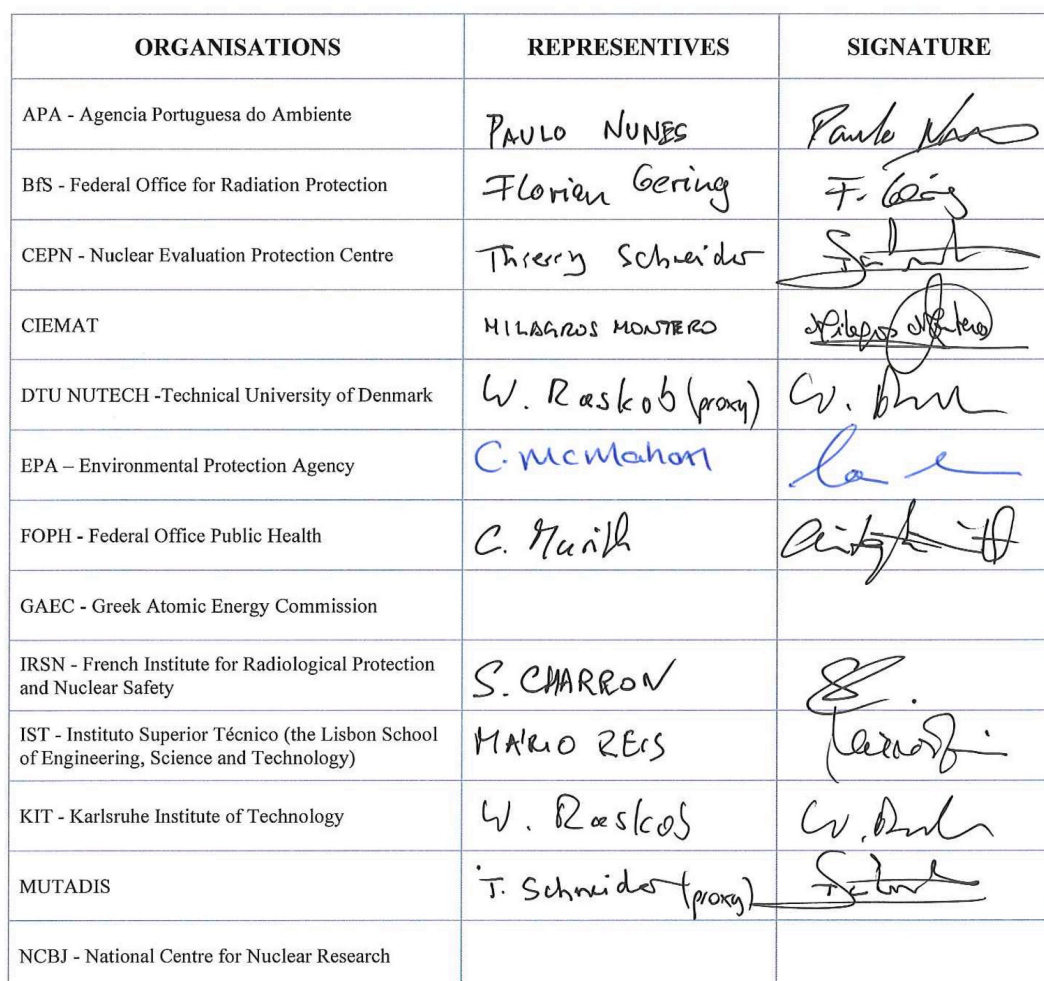 ORGANISATIONS REPRESENTIVES SIGNATURE
APA - Agencia Portuguesa do Ambiente PAULO NUNES Paulo
BfS - Federal Office for Radiation Protection Florian Gering F. Gering
CEPN - Nuclear Evaluation Protection Centre Thierry Schneider
CIEMAT MILAGROS MONTERO Milagros Montero
DTU NUTECH -Technical University of Denmark W. Raskob (proxy) W.
EPA – Environmental Protection Agency C. McMahon
FOPH - Federal Office Public Health C. Murith
GAEC - Greek Atomic Energy Commission
IRSN - French Institute for Radiological Protection
and Nuclear Safety S. CHARRON
IST - Instituto Superior Técnico (the Lisbon School
of Engineering, Science and Technology) MÁRIO REIS
KIT - Karlsruhe Institute of Technology W. Raskob W.
MUTADIS T. Schneider (proxy)
NCBJ - National Centre for Nuclear Research